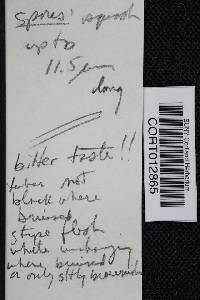 Spores' squash
up to
11.5 um
long
bitter taste!!
tubes not
black where
bruised
stipe flesh
white unchanging
where bruised
or only sltly brownish
SUNY Cortland Herbarium
CORT012865